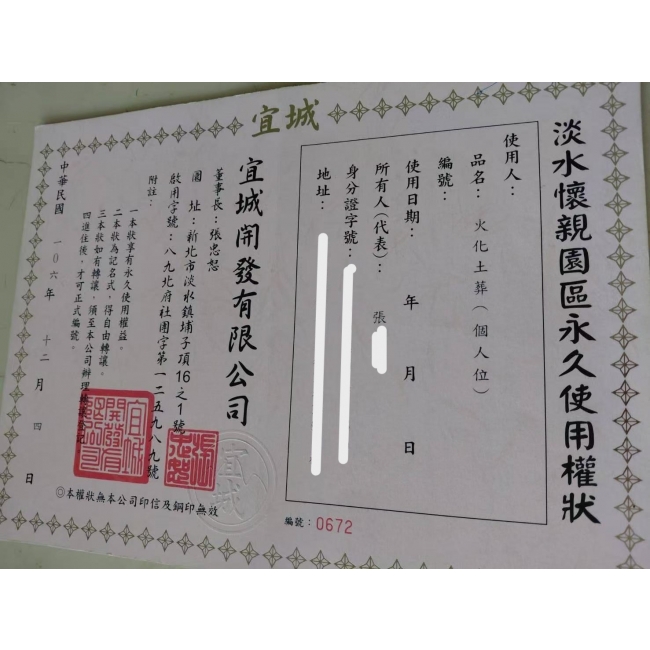 宜城
淡水懷親園區永久使用權狀
使用人：
品名：火化土葬（個人位）
編號：
使用日期： 年 月 日
所有人（代表）：張
身分證字號：
地址：
編號：0672
宜城開發有限公司
董事長：張忠恕
園址：新北市淡水鎮埔子頂16之1號
啟用字號：八九北府社團字第一二五九八九號
附註：
一本狀享有永久使用權益。
二本狀為記名式，得自由轉讓。
三本狀如有轉讓，須至本公司辦理
四進住後，才可正式編號。
中華民國 一〇六年 十二月 四日
◎本權狀無本公司印信及鋼印無效
宜城